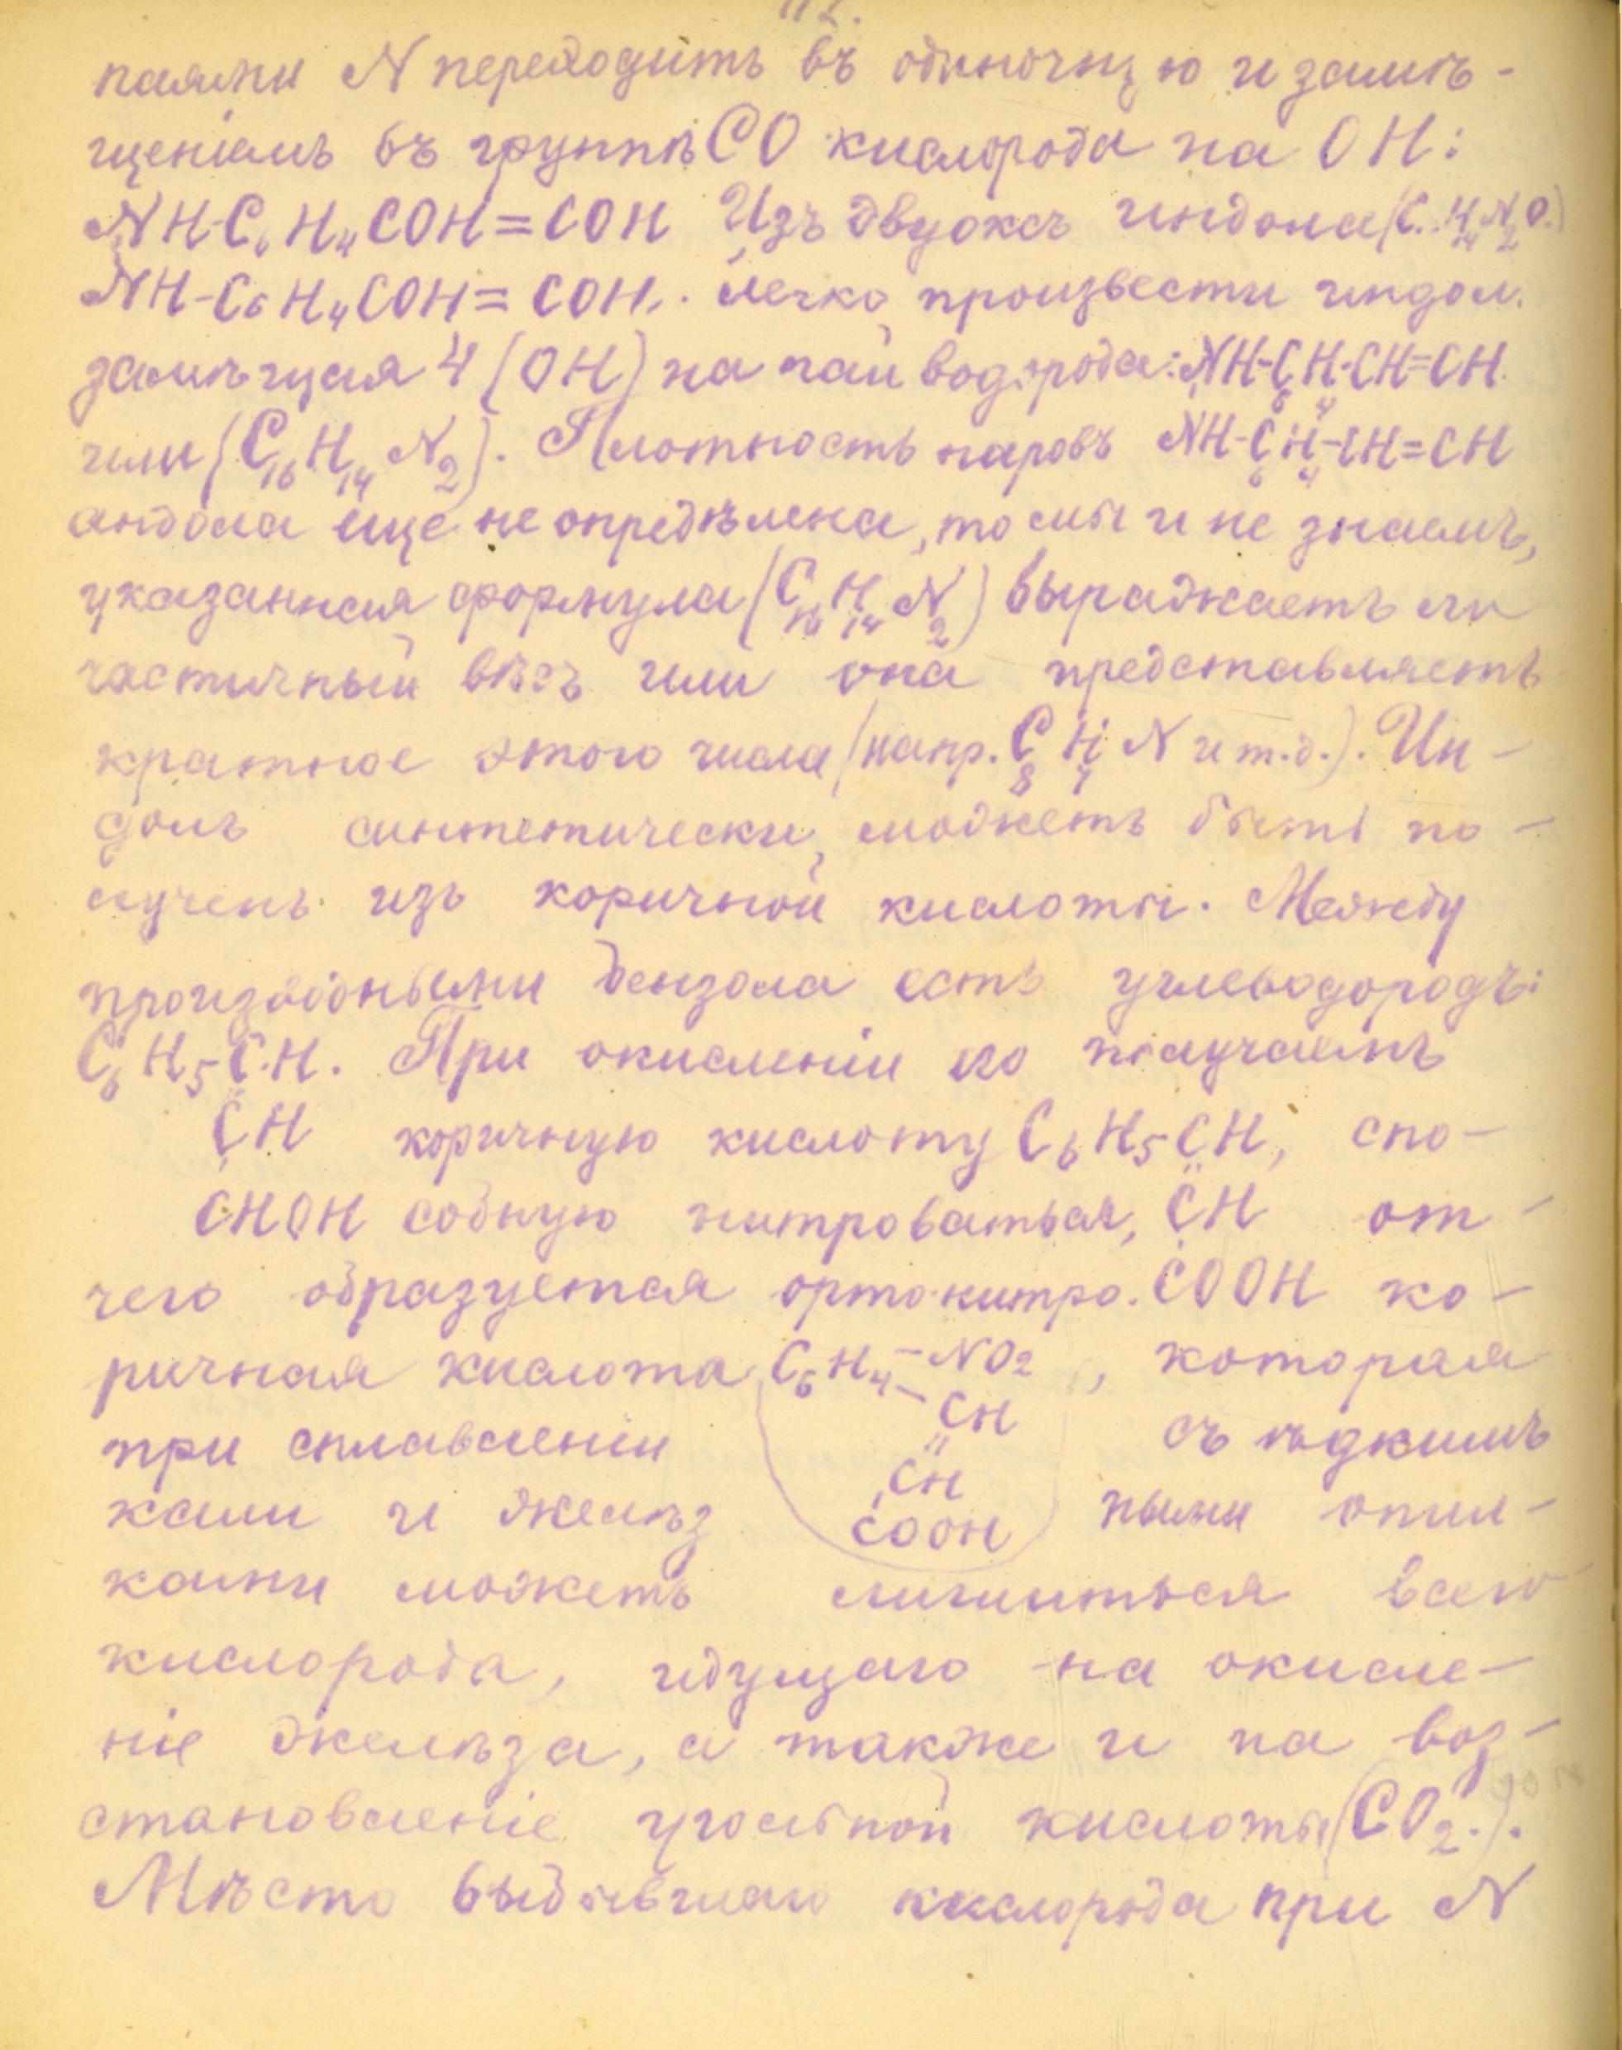 112.
паями N переходитъ въ одиночную и замѣ-
щеніемъ въ группѣ CO кислорода на OH:
NH-C6H4COH=COH Изъ двуокси индола (C16H14N2O.)
NH-C6H4COH=COH. легко произвести индол.
замѣщая 4 (OH) на паи водорода: NH-C6H4-CH=CH
или (C16H14N2). Плотность паровъ NH-C6H4-CH=CH
андола еще не опредѣлена, то мы и не знаемъ,
указанная формула (C16H14N2) выражаетъ ли
частичный вѣсъ или она представляетъ
кратное этого числа (напр. C8H7N и т.д.). Ин-
долъ синтетически, можетъ быть по-
лученъ изъ коричной кислоты. Между
производными бензола есть углеводородъ:
C6H5CH. При окисленіи его получаемъ
CH коричную кислоту C6H5CH, спо-
CHOH собную нитроваться, CH от-
чего образуется ортонитро. COOH ко-
ричная кислота C6H4-NO2, которая
-CH
при сплавленіи съ ѣдкимъ
CH
кали и желѣз ными опил-
COOH
ками можетъ лишиться всего
кислорода, идущаго на окисле-
ніе желѣза, а также и на воз-
становленіе угольной кислоты (CO2.).
Мѣсто выбывшаго кислорода при N